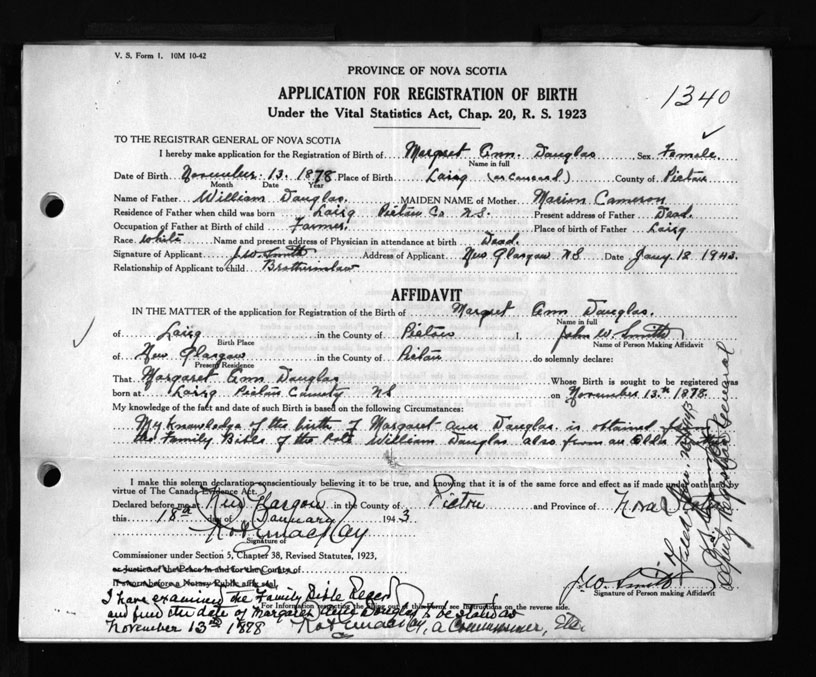 V. S. Form 1. 10M 10-42
PROVINCE OF NOVA SCOTIA
APPLICATION FOR REGISTRATION OF BIRTH
Under the Vital Statistics Act, Chap. 20, R. S. 1923
1340
TO THE REGISTRAR GENERAL OF NOVA SCOTIA
I hereby make application for the Registration of Birth of Margret Ann Douglas Sex Female
Name in full
Date of Birth November 13. 1878 Place of Birth Lairg County of Pictou
Month Date Year
Name of Father William Douglas. MAIDEN NAME of Mother Marion Cameron
Residence of Father when child was born Lairg Pictou Co. N.S. Present address of Father Dead.
Occupation of Father at Birth of child Farmer. Place of birth of Father Lairg
Race White Name and present address of Physician in attendance at birth Dead.
Signature of Applicant J.W. Smith Address of Applicant New Glasgow N.S. Date Jany. 18 1943.
Relationship of Applicant to child Brotherinlaw
AFFIDAVIT
IN THE MATTER of the application for Registration of the Birth of Margret Ann Douglas.
Name in full
of Lairg in the County of Pictou I, John W. Smith
Birth Place Name of Person Making Affidavit
of New Glasgow in the County of Pictou do solemnly declare:
Present Residence
That Margaret Ann Douglas Whose Birth is sought to be registered was
born at Lairg Pictou County NS on November 13th 1878.
My knowledge of the fact and date of such Birth is based on the following Circumstances:
My knowledge of the birth of Margaret Ann Douglas is obtained from
the Family Bible of the late William Douglas also from an older
I make this solemn declaration conscientiously believing it to be true, and knowing that it is of the same force and effect as if made under oath and by
virtue of The Canada Evidence Act.
Declared before me at New Glasgow in the County of Pictou and Province of Nova Scotia
this 18th day of January 1943
Signature of
Commissioner under Section 5, Chapter 38, Revised Statutes, 1923,
or Justice of the Peace in and for the County of
If sworn before a Notary Public affix seal.
J.W. Smith
Signature of Person making Affidavit
For Information respecting the filling out of this Form, see instructions on the reverse side.
I have examined the Family Bible Record
and find the date of Margaret Ann Douglas to be given as
November 13th 1878 a Commissioner, Etc.
Deputy Registrar General